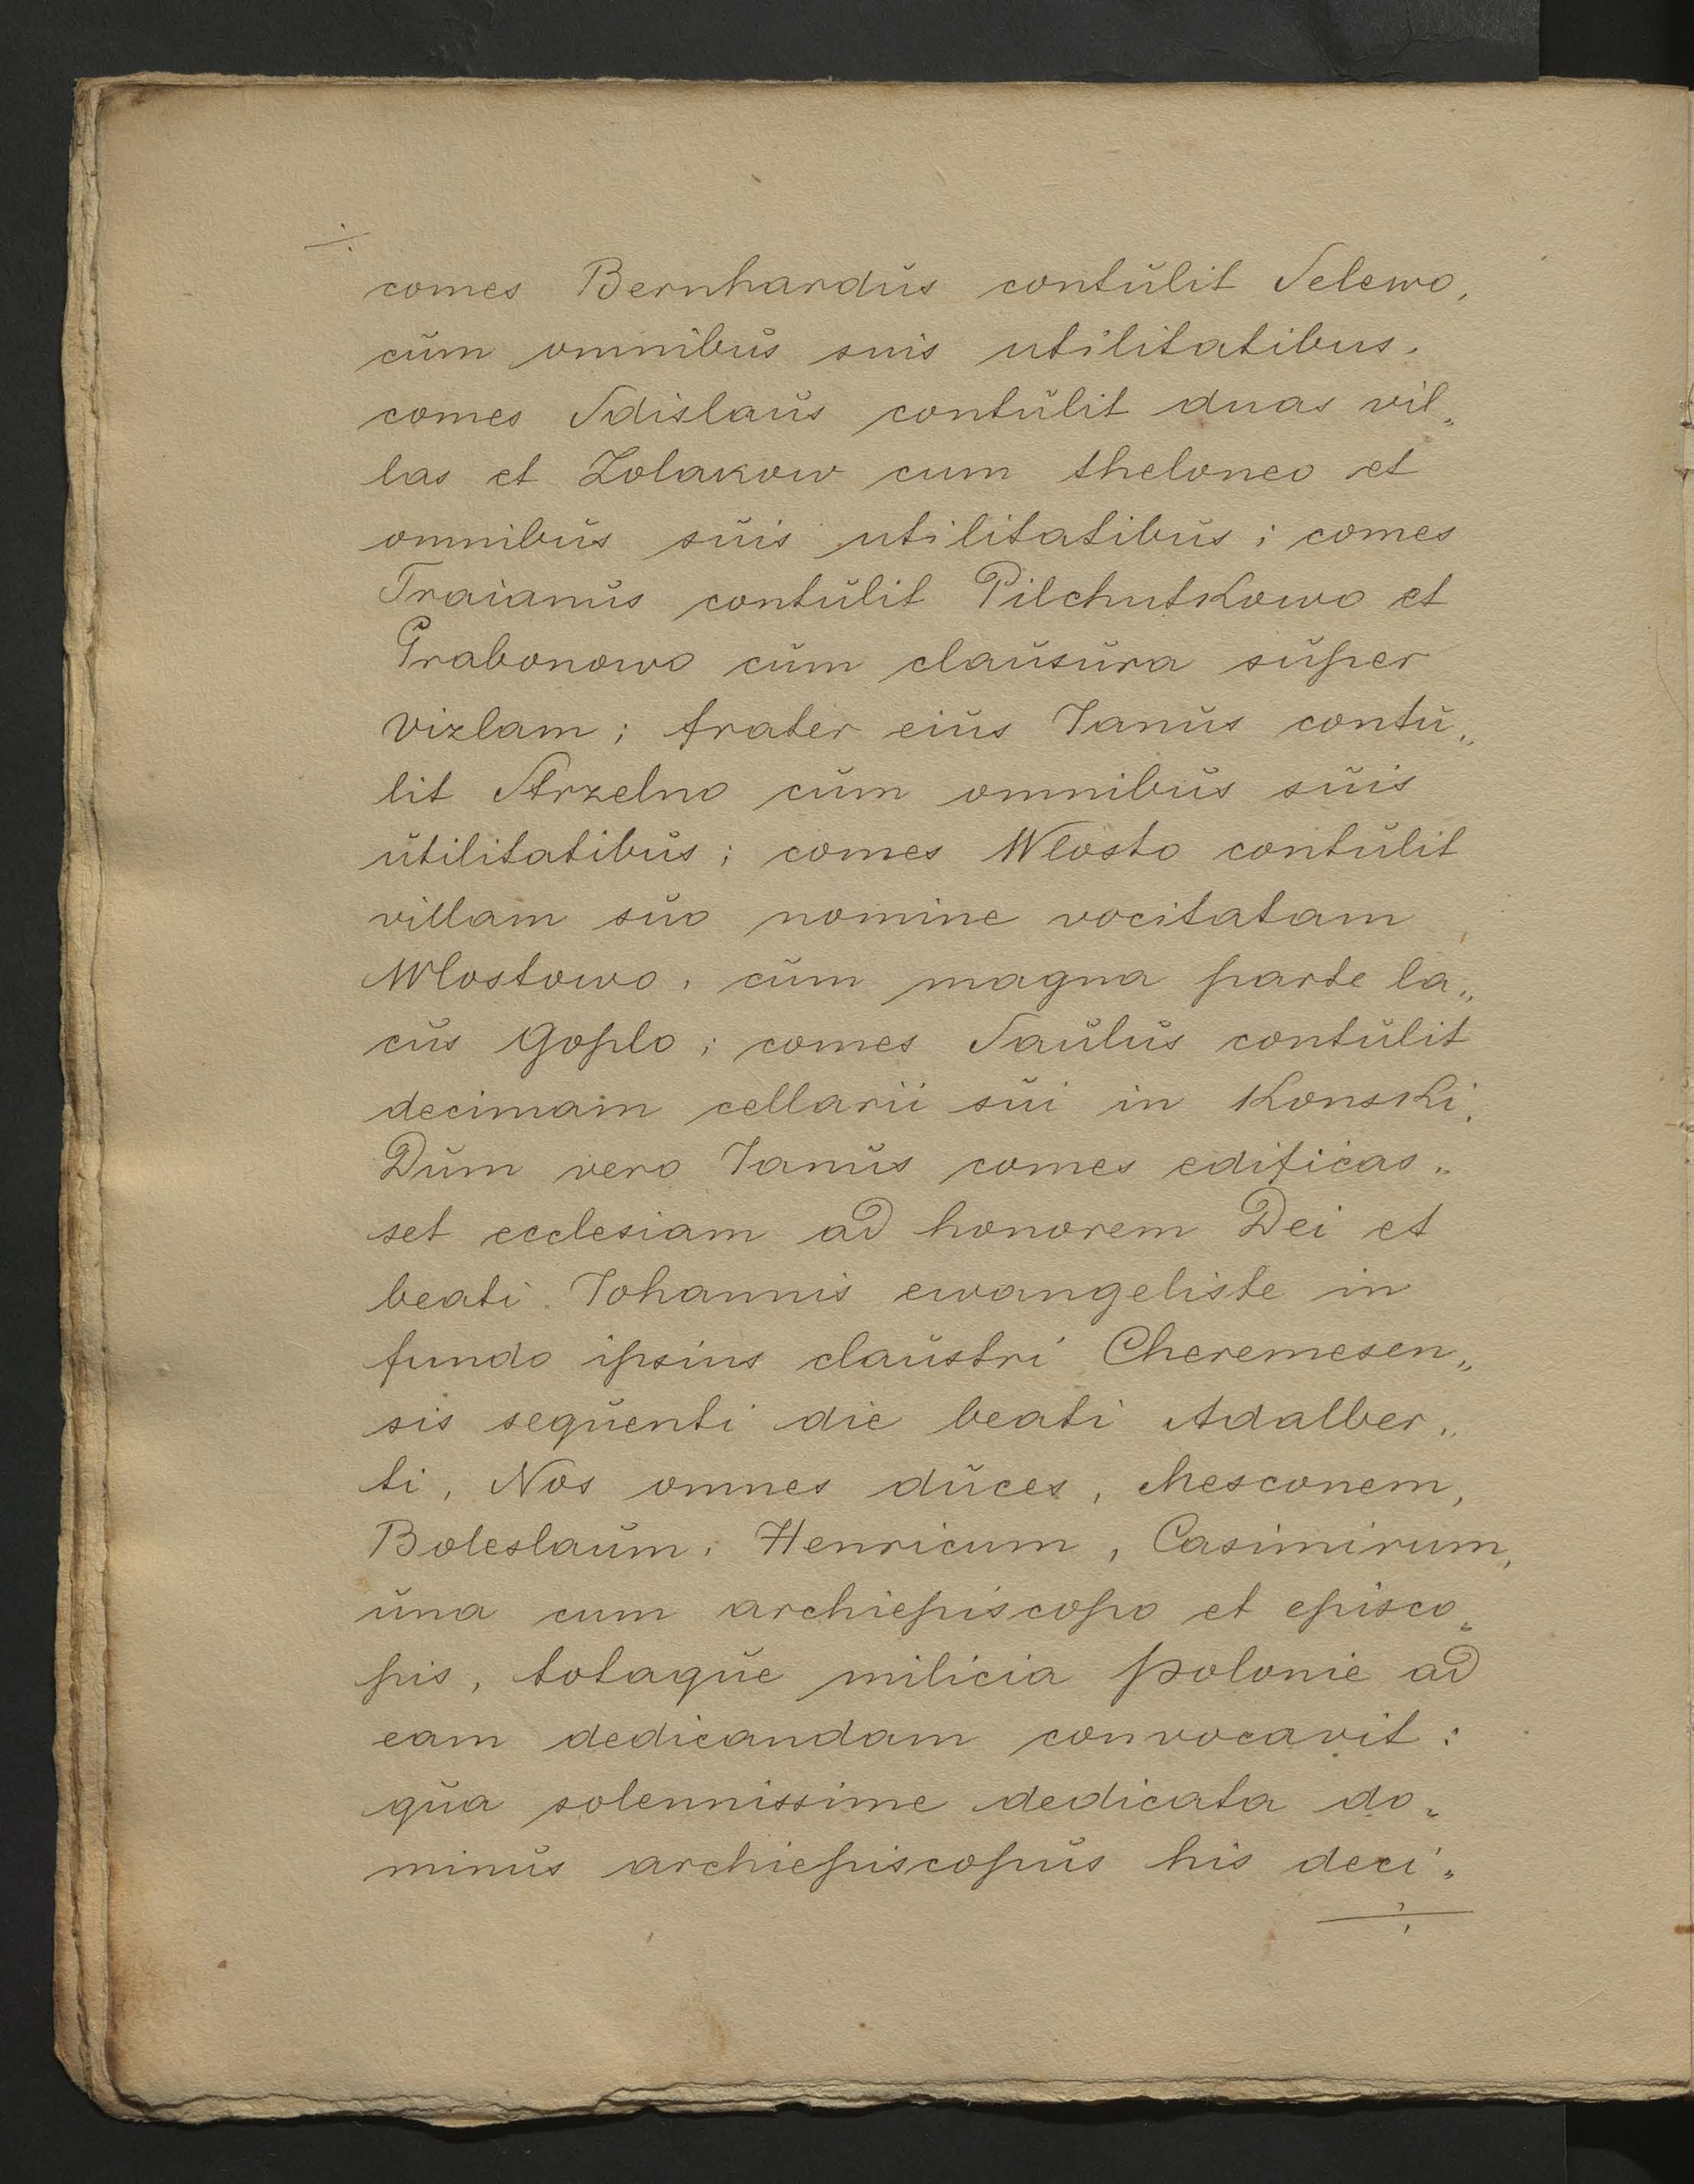 ÷
comes Bernhardus contulit Selewo,
cum omnibus suis utilitatibus.
comes Sdislaus contulit duas vil„
las et Zolakow cum theloneo et
omnibus suis utilitatibus; comes
Traianus contulit Pilchutkowo et
Grabonowo cum clausura super
Vizlam; frater eius Ianus contu„
lit Strzelno cum omnibus suis
utilitatibus; comes Wlosto contulit
villam suo nomine vocitatam
Wlostowo, cum magna parte la„
cus Goplo; comes Saulus contulit
decimam cellarii sui in Konski.
Dum vero Ianus comes edificas„
set ecclesiam ad honorem Dei et
beati Iohannis ewangeliste in
fundo ipsius claustri Cheremesen„
sis sequenti die beati Adalber„
ti, Nos omnes duces, Mesconem,
Boleslaum, Henricum, Casimirum,
una cum archiepiscopo et episco„
pis, totaque milicia Polonie ad
eam dedicandam convocavit:
qua solennissime dedicata do„
minus archiepiscopus his deci„
÷